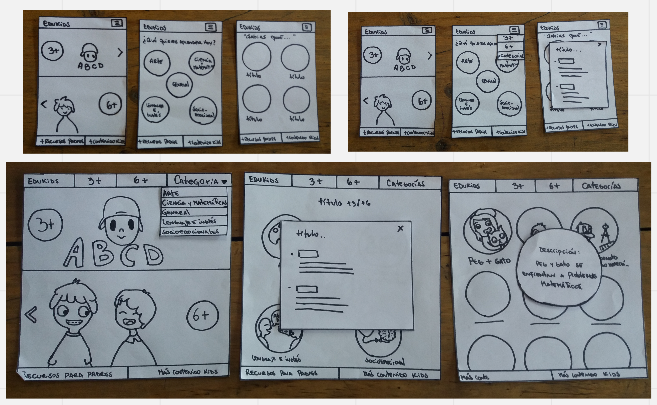 EDUKIDS
3+
ABCD
6+
+RECURSOS PADRES
+CONTENIDO KIDS
EDUKIDS
¿Qué quieres aprender hoy?
ARTE
CIENCIA y
GENERAL
LENGUAJE
e INGLÉS
SOCIO-
EMOCIONAL
+RECURSOS PADRES
+CONTENIDO KIDS
EDUKIDS
título
título
título
título
+RECURSOS PADRES
+CONTENIDO KIDS
EDUKIDS
3+
ABCD
6+
+RECURSOS PADRES
+CONTENIDO KIDS
EDUKIDS
3+
6+
ARTE
GENERAL
+RECURSOS PADRES
+CONTENIDO KIDS
EDUKIDS
título...
x
EDUKIDS
3+
6+
CATEGORÍA
ARTE
CIENCIA Y MATEMÁTICAS
GENERAL
LENGUAJE E INGLÉS
SOCIOEMOCIONALES
3+
ABCD
6+
RECURSOS PARA PADRES
MÁS CONTENIDO KIDS
EDUKIDS
3+
6+
CATEGORÍAS
título +3/+6
título...
x
LENGUAJE E INGLÉS
SOCIOEMOCIONAL
RECURSOS PARA PADRES
MÁS CONTENIDO KIDS
EDUKIDS
3+
6+
CATEGORÍAS
PEG + GATO
DESCRIPCIÓN:
PEG Y GATO SE
ENFRENTAN A PROBLEMAS
MATEMÁTICOS
MÁS CONTENIDO KIDS